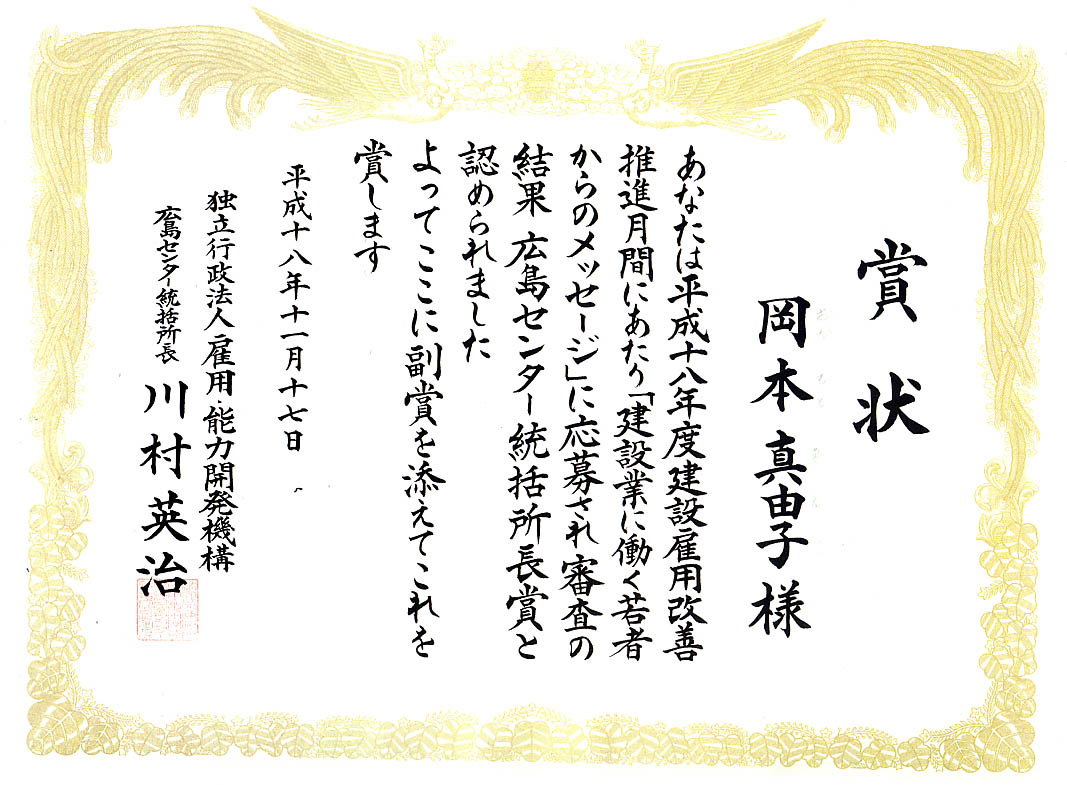 賞状
岡本 真由子 様
あなたは平成十八年度建設雇用改善
推進月間にあたり「建設業に働く若者
からのメッセージ」に応募され審査の
結果 広島センター統括所長賞と
認められました
よってここに副賞を添えてこれを
賞します
平成十八年十一月十七日
独立行政法人雇用・能力開発機構
広島センター統括所長 川村英治